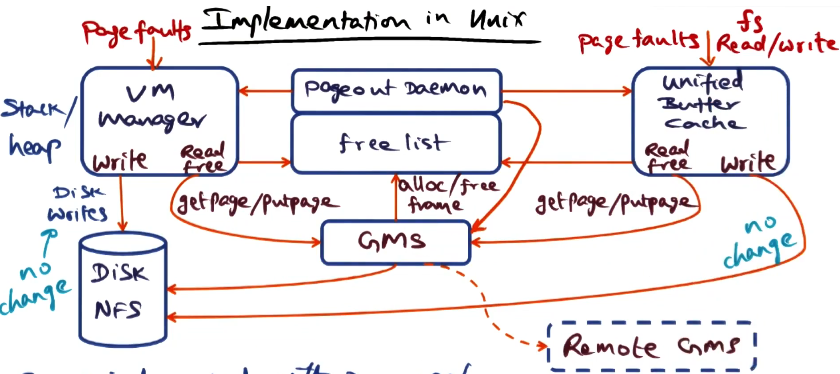 Implementation in Unix
page faults
page faults
fs
Read/write
VM
manager
Stack/
heap
write
Read
free
pageout Daemon
free list
unified
Buffer
cache
Read
free
write
Disk
writes
no
change
getpage/putpage
alloc/free
frame
getpage/putpage
GMS
no
change
DISK
NFS
Remote GMS